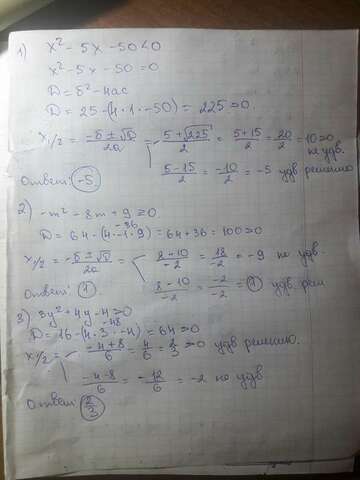 1) x² - 5x - 50 < 0
x² - 5x - 50 = 0
D = b² - 4ac
D = 25 - (4 · 1 · -50) = 225 > 0.
x1/2 = (-b ± √D)/2a = (5 + √225)/2 = (5 + 15)/2 = 20/2 = 10 > 0 не удв.
(5 - 15)/2 = -10/2 = -5 удв решению
Ответ: -5
2) -m² - 8m + 9 ≥ 0
-36
D = 64 - (4 · -1 · 9) = 64 + 36 = 100 > 0
x1/2 = (-b ± √D)/2a = (8 + 10)/-2 = 18/-2 = -9 не удв.
(8 - 10)/-2 = -2/-2 = 1 удв. реш
Ответ: 1
3) 3y² + 4y - 4 > 0
-48
D = 16 - (4 · 3 · -4) = 64 > 0
x1/2 = (-4 + 8)/6 = 4/6 = 2/3 > 0 удв решению.
(-4 - 8)/6 = -12/6 = -2 не удв
Ответ: 2/3